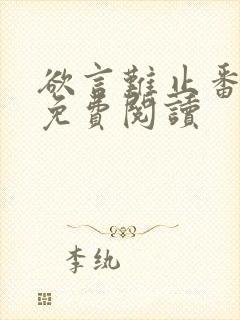 欲言難止番
免費閱讀
李紈